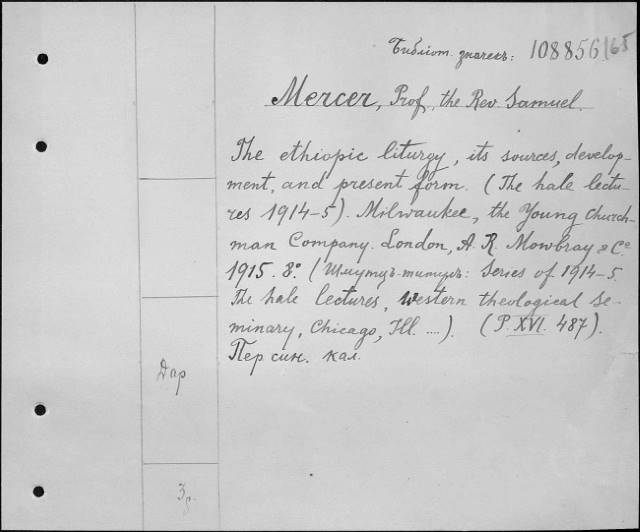 Библiот. значекъ: 108856/65
Mercer, Prof. the Rev. Samuel.
The ethiopic liturgy, its sources, develop-
ment, and present form. (The hale lectu-
res 1914-5). Milwaukee, the Young Church-
man Company. London, A. R. Mowbray & Cº
1915. 8º. (Шмутцъ-титулъ: Series of 1914-5.
The hale lectures, Western theological se-
minary, Chicago, Ill. ....). (P. XVI. 487).
Пер син. кал.
Дар
3